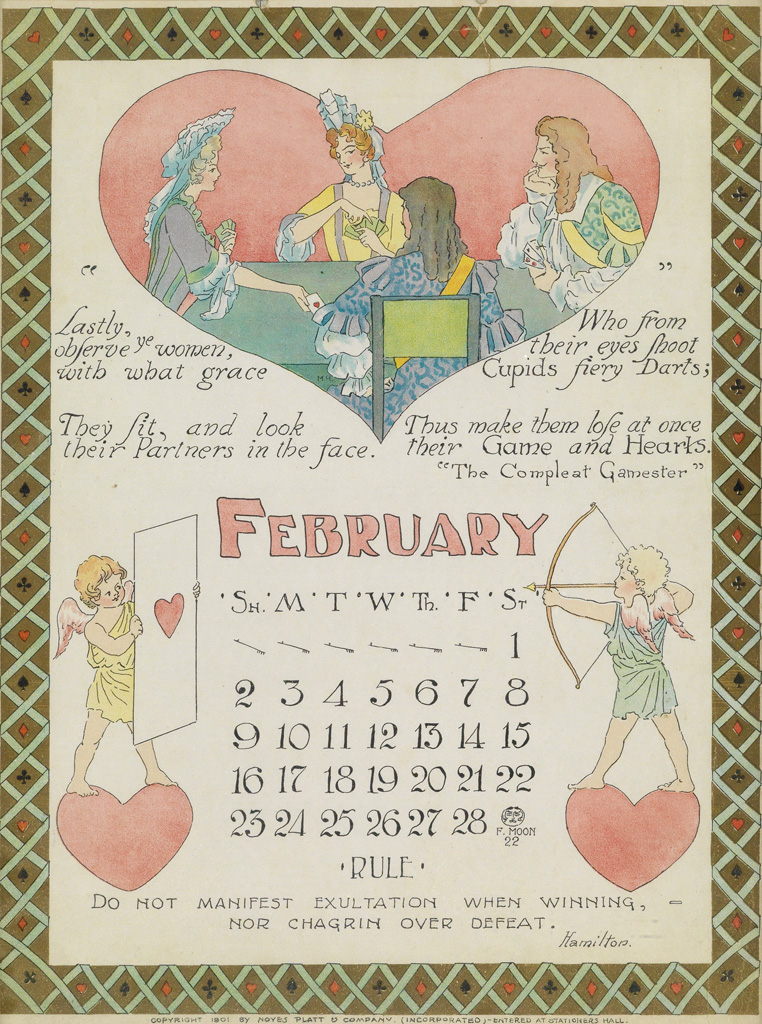 “ ”
Lastly,
obſerve ye women,
with what grace
They ſit, and look
their Partners in the face.
Who from
their eyes ſhoot
Cupids fiery Darts;
Thus make them loſe at once
their Game and Hearts.
“The Compleat Gamester”
FEBRUARY
SH. M T W TH. F ST
1
2 3 4 5 6 7 8
9 10 11 12 13 14 15
16 17 18 19 20 21 22
23 24 25 26 27 28 F. MOON
22
RULE
DO NOT MANIFEST EXULTATION WHEN WINNING, –
NOR CHAGRIN OVER DEFEAT.
Hamilton.
COPYRIGHT 1901 BY NOYES PLATT & COMPANY. (INCORPORATED)-ENTERED AT STATIONERS HALL.